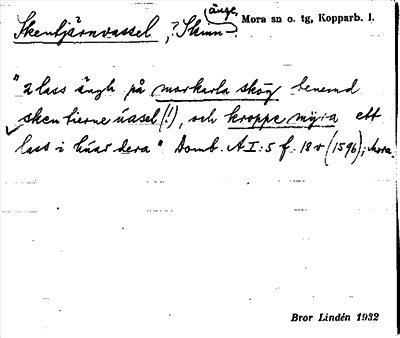 Skentjärnvassel, ? Skinn-. änge, Mora sn o. tg, Kopparb. l.
"2 lass ängh på morkarla skog benemd
sken tierne uasel (!), och kroppe myra ett
lass i huar dera" Domb. A I:5 f. 18 v (1596); Mora.
Bror Lindén 1932